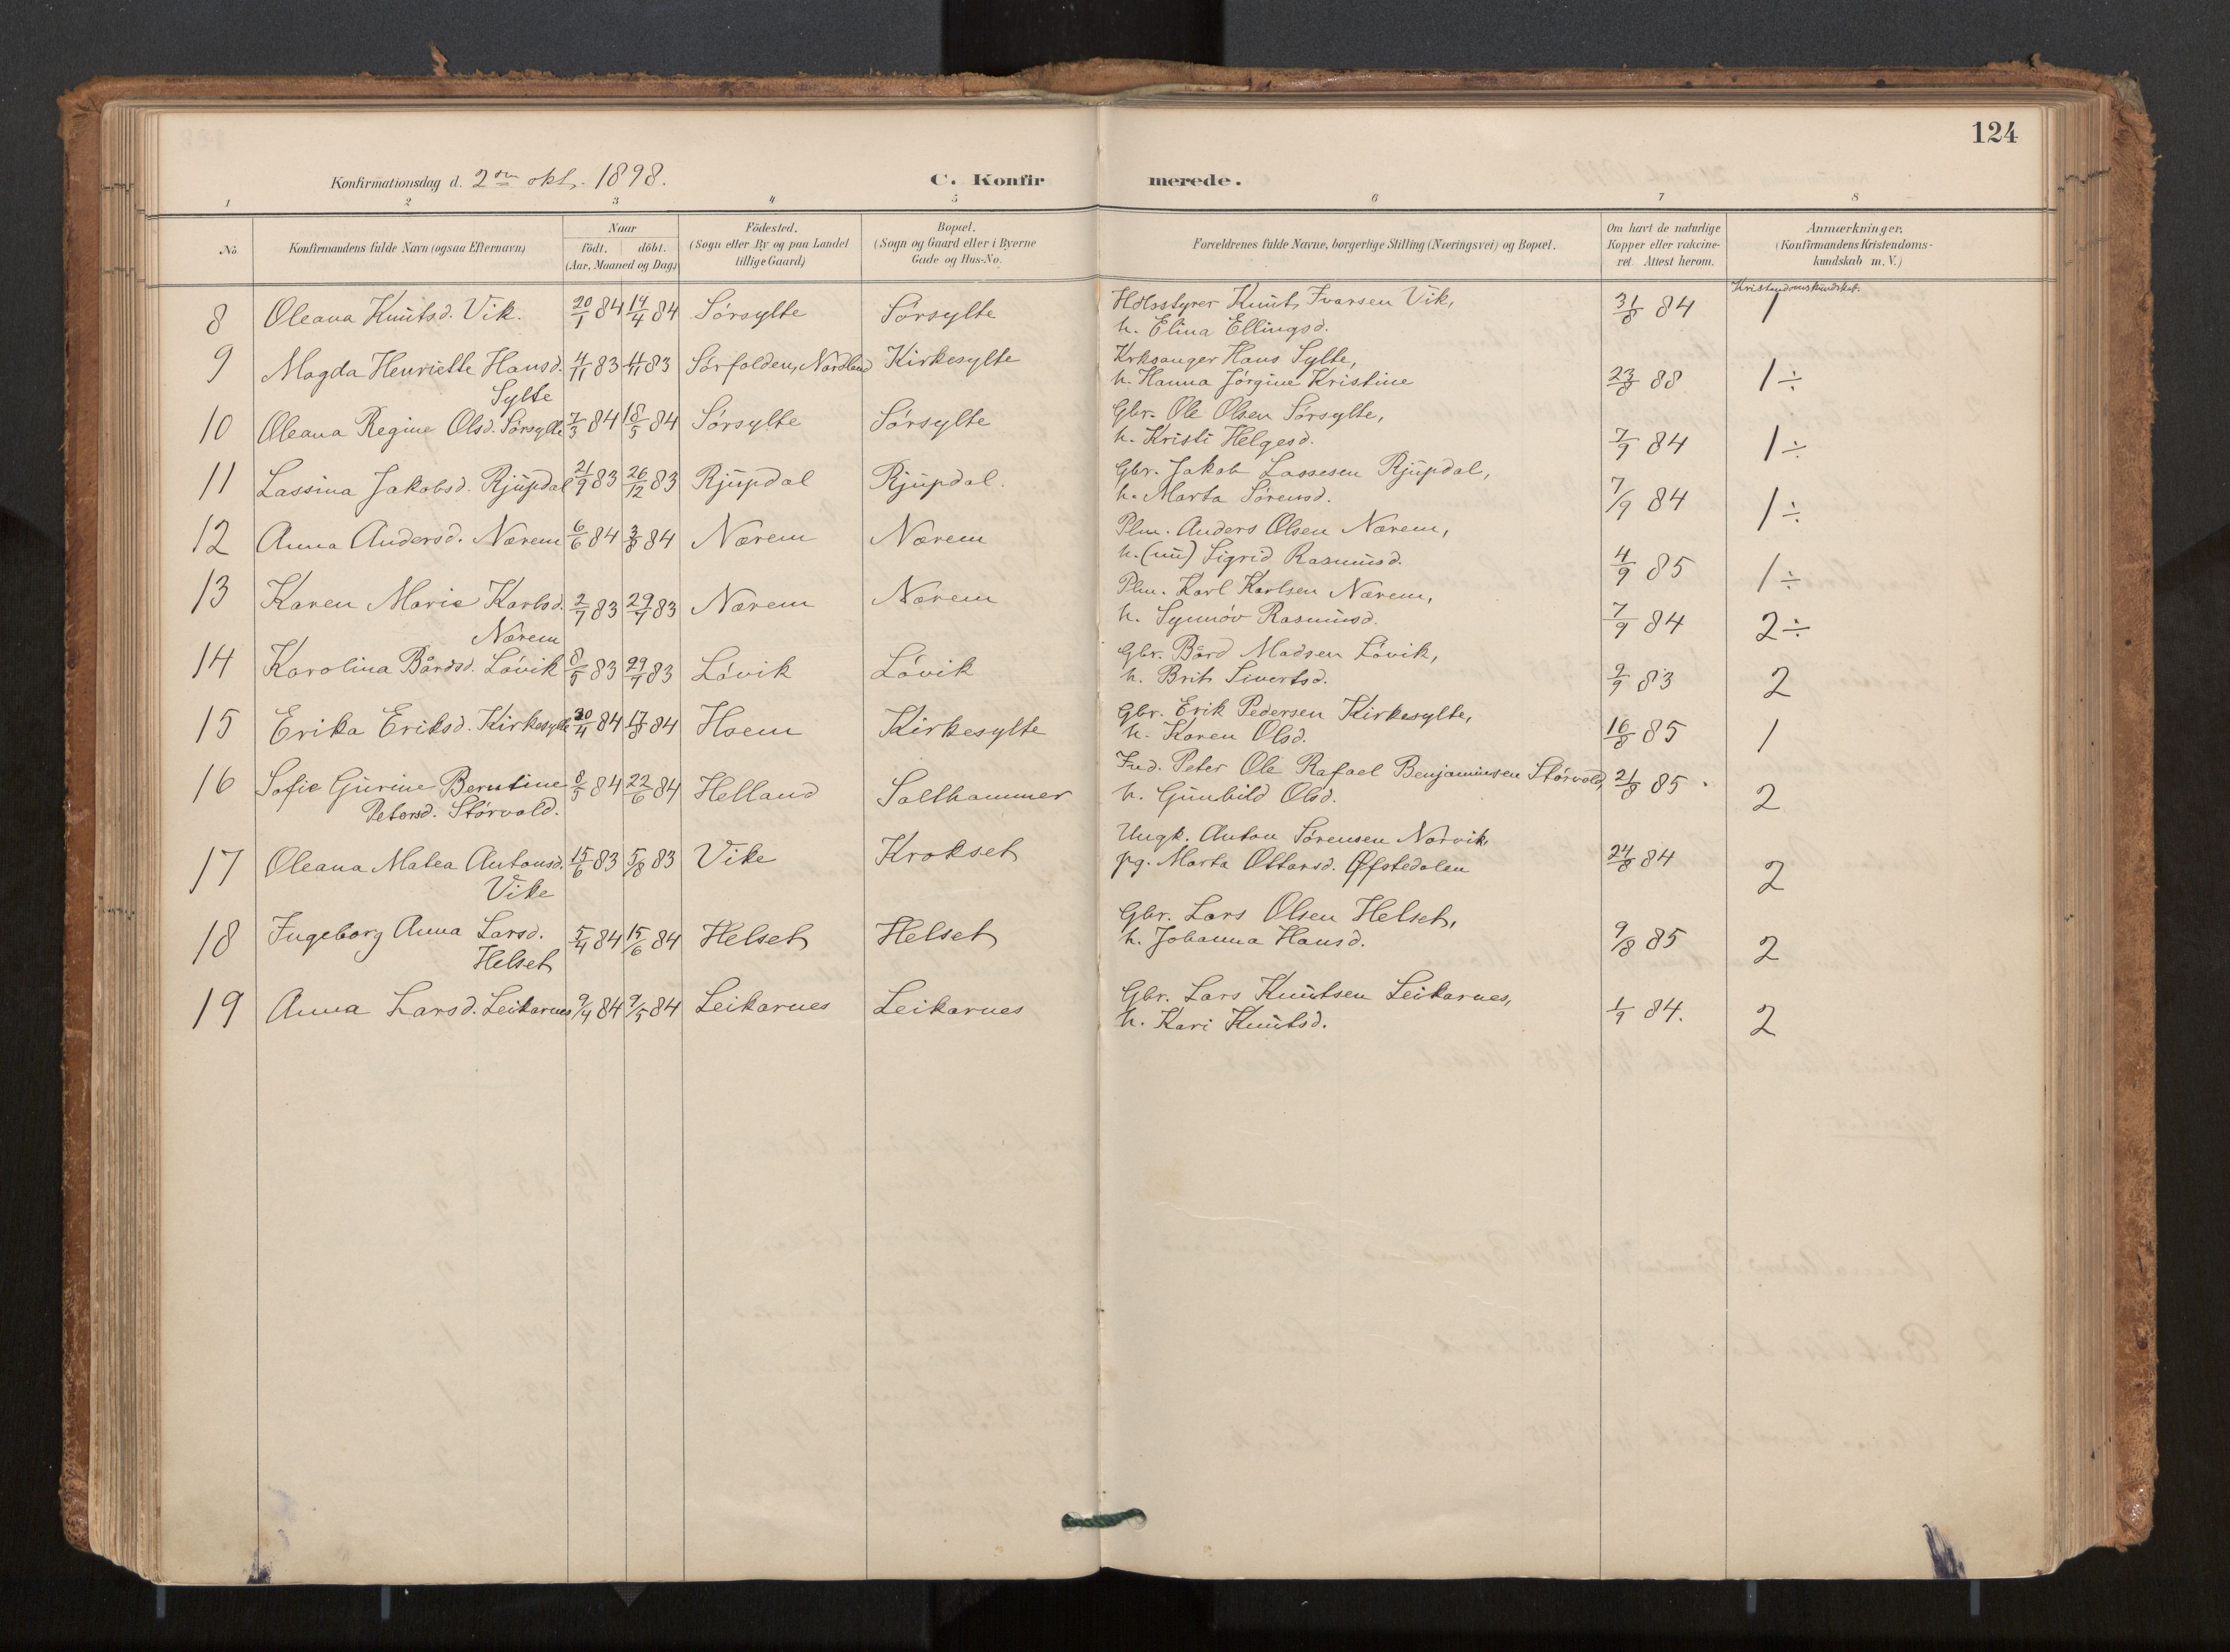 124
Konfirmationsdag d. 2den okt. 1898.
C. Konfirmerede.
1 2 3 4 5 6 7 8
No.
Konfirmandens fulde Navn (ogsaa Efternavn)
Naar
födt. döbt.
(Aar, Maaned og Dag)
Födested.
(Sogn eller By og paa Landet
tillige Gaard)
Bopæl.
(Sogn og Gaard eller i Byerne
Gade og Hus-No.
Forældrenes fulde Navne, borgerlige Stilling (Næringsvei) og Bopæl.
Om havt de naturlige
Kopper eller vakcine-
ret. Attest herom.
Anmærkninger.
(Konfirmandens Kristendoms-
kundskab m. V.)
Kristendomskundskab.
8 Oleana Knutsd. Vik. 20/1 84 14/4 84 Sørsylte Sørsylte Knut Ivarsen Vik, 31/8 84 1
h. Elina Ellingsd.
9 Magda Henriette Hansd. 4/11 83 4/11 83 Sørfolden, Nordland Kirkesylte Krksanger Hans Sylte,
Sylte h. Hanna Jørgine Kristine 23/8 88 1÷
10 Oleana Regine Olsd. Sørsylte 7/3 84 18/5 84 Sørsylte Sørsylte Gbr. Ole Olsen Sørsylte,
h. Kristi Helgesd. 7/9 84 1÷
11 Lassina Jakobsd. Rjupdal 21/9 83 26/12 83 Rjupdal Rjupdal. Gbr. Jakob Lassesen Rjupdal,
h. Marta Sørensd. 7/9 84 1÷
12 Anna Andersd. Nærem 6/6 84 3/8 84 Nærem Nærem Plm. Anders Olsen Nærem,
h. (nu) Sigrid Rasmusd. 4/9 85 1÷
13 Karen Marie Karlsd. 2/7 83 29/7 83 Nærem Nærem Plm. Karl Karlsen Nærem,
Nærem h. Synnøv Rasmusd. 7/9 84 2÷
14 Karolina Bårdsd. Løvik 8/5 83 29/7 83 Løvik Løvik Gbr. Bård Madsen Løvik,
h. Brit Sivertsd. 9/9 83 2
15 Erika Eriksd. Kirkesylte 30/4 84 17/8 84 Hoem Kirkesylte Gbr. Erik Pedersen Kirkesylte,
h. Karen Olsd. 16/8 85 1
16 Sofie Gurine Berntine 8/5 84 22/6 84 Helland Salthammer Ind. Peter Ole Rafael Benjaminsen Størvold, 21/8 85
Petersd. Størvold. h. Gunhild Olsd. 2
17 Oleana Matea Antonsd. 15/6 83 5/8 83 Vike Krokset Ungk. Anton Sørensen Norvik,
Vike pg. Marta Ottarsd. Øfstedalen 24/8 84 2
18 Ingeborg Anna Larsd. 5/4 84 15/6 84 Helset Helset Gbr. Lars Olsen Helset,
Helset h. Johanna Hansd. 9/8 85 2
19 Anna Larsd. Leikarnes 9/4 84 9/5 84 Leikarnes Leikarnes Gbr. Lars Knutsen Leikarnes,
h. Kari Knutsd. 1/9 84. 2